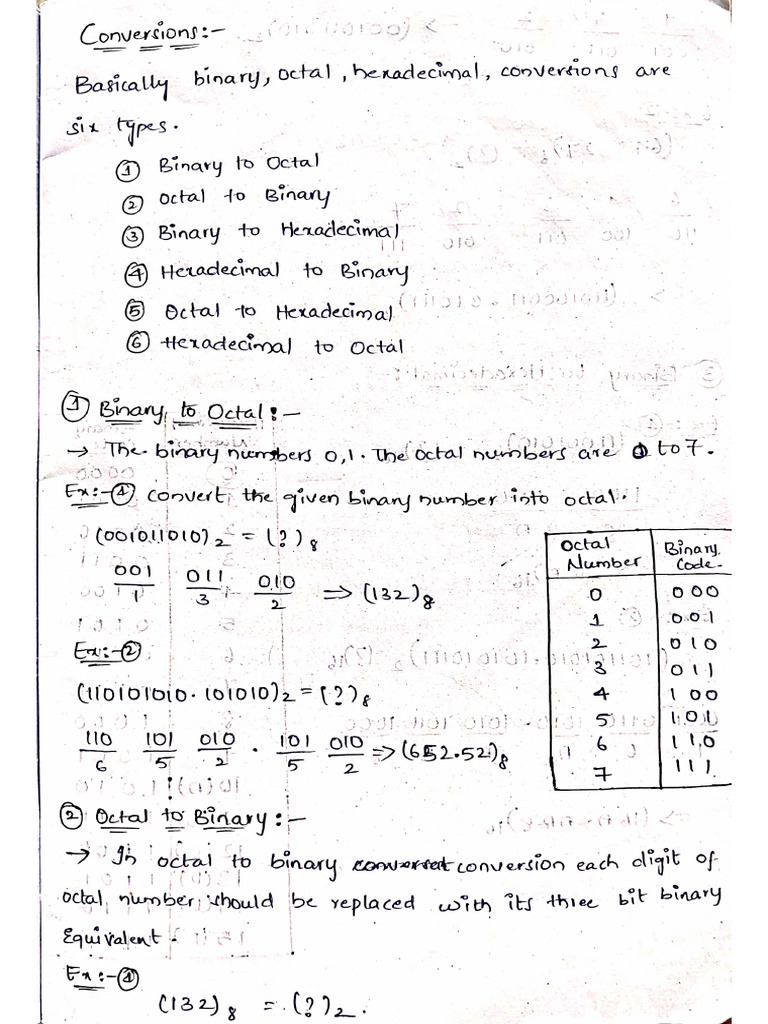 Conversions:-
Basically binary, octal, hexadecimal, conversions are
six types.
① Binary to Octal
② Octal to Binary
③ Binary to Hexadecimal
④ Hexadecimal to Binary
⑤ Octal to Hexadecimal
⑥ Hexadecimal to Octal
① Binary to Octal:-
→ The binary numbers 0,1. The octal numbers are 0 to 7.
Ex:-① convert the given binary number into octal.
(001011010)₂ = (?)₈
001 011 010 ⇒ (132)₈
1 3 2
Ex:-②
(110101010.101010)₂ = (?)₈
110 101 010 . 101 010 ⇒ (652.52)₈
6 5 2 5 2
Octal Number Binary Code
0 000
1 001
2 010
3 011
4 100
5 101
6 110
7 111
② Octal to Binary:-
→ In octal to binary conversion each digit of
octal number should be replaced with its three bit binary
Equivalent.
Ex:-①
(132)₈ = (?)₂.